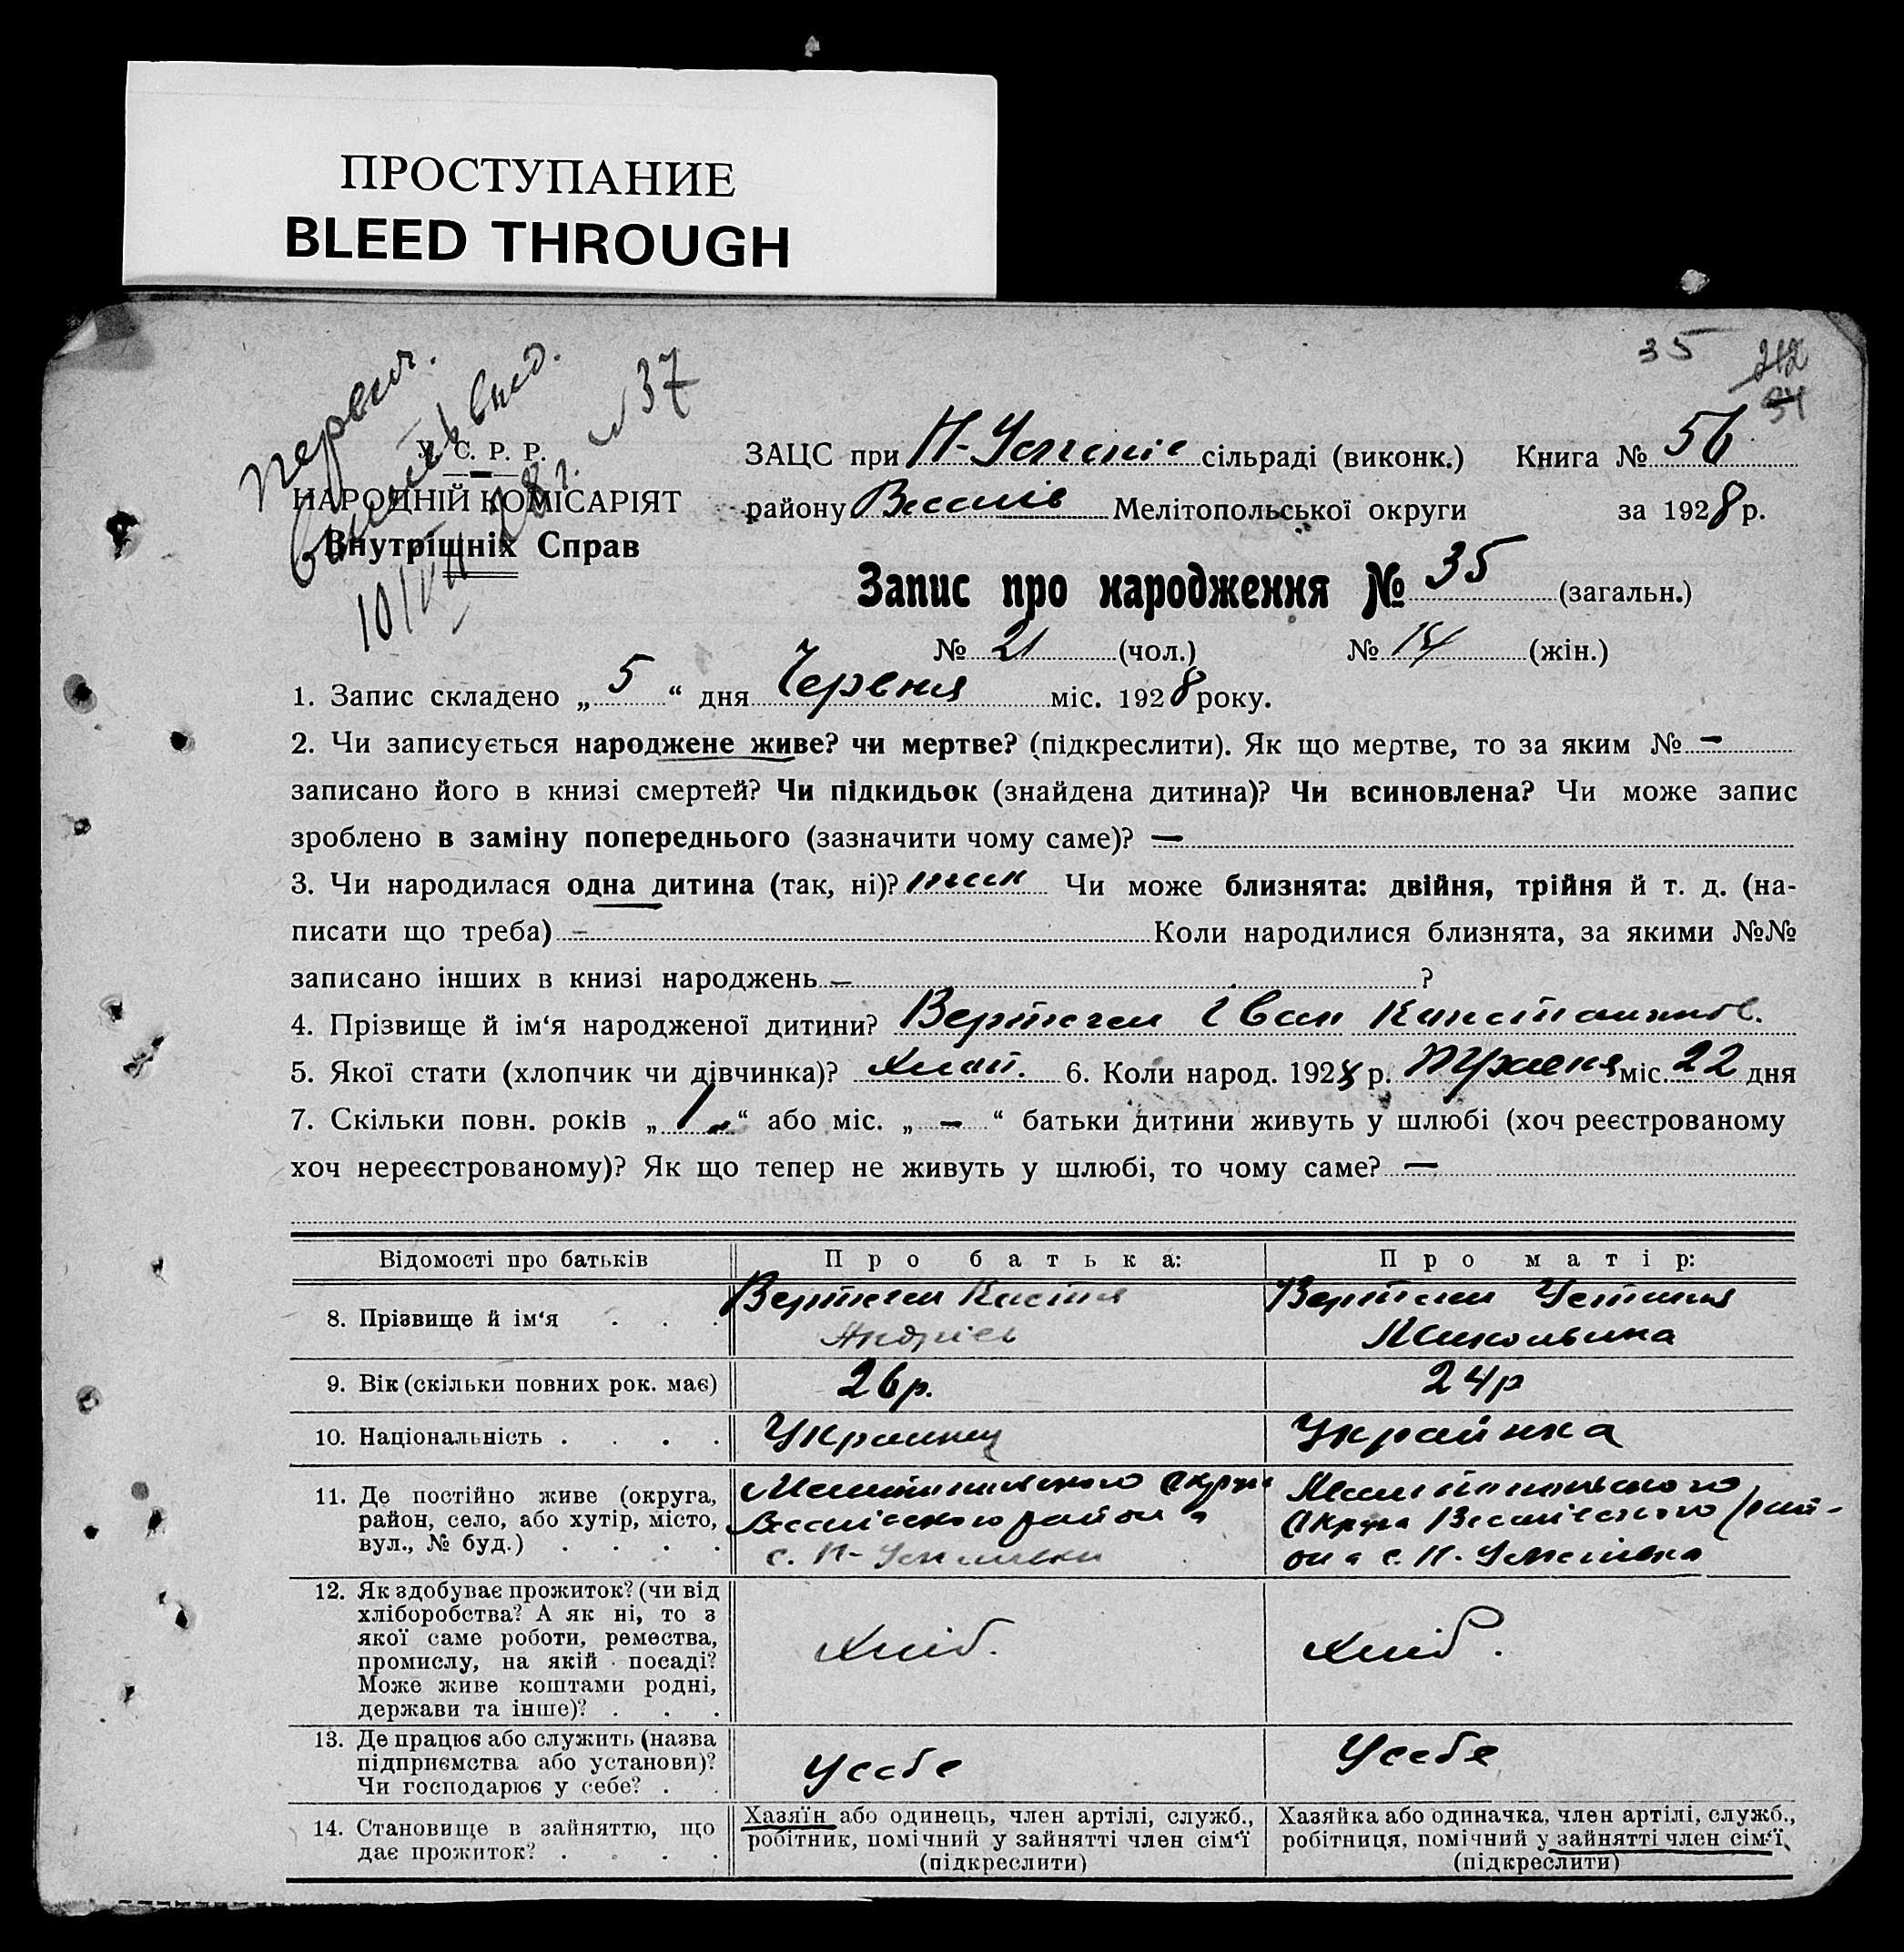 ПРОСТУПАНИЕ
BLEED THROUGH
35
212
34
№ 37
У. С. Р. Р.
НАРОДНІЙ КОМІСАРІЯТ
Внутрішніх Справ
ЗАЦС при сільраді (виконк.) Книга № 56
району Веселів Мелітопольської округи за 1928 р.
Запис про народження № 35 (загальн.)
№ 21 (чол.) № 14 (жін.)
1. Запис складено „ 5 “ дня Червня міс. 1928 року.
2. Чи записується народжене живе? чи мертве? (підкреслити). Як що мертве, то за яким № —
записано його в книзі смертей? Чи підкидьок (знайдена дитина)? Чи всиновлена? Чи може запис
зроблено в заміну попереднього (зазначити чому саме)? —
3. Чи народилася одна дитина (так, ні)? так Чи може близнята: двійня, трійня й т. д. (на-
писати що треба) — Коли народилися близнята, за якими №№
записано інших в книзі народжень — ?
4. Прізвище й ім‘я народженої дитини? Вертегел Іван Констянтнов.
5. Якої стати (хлопчик чи дівчинка)? Хлоп. 6. Коли народ. 1928 р. Травня міс. 22 дня
7. Скільки повн. років „ 1 “ або міс. „ — “ батьки дитини живуть у шлюбі (хоч реєстрованому
хоч нереєстрованому)? Як що тепер не живуть у шлюбі, то чому саме? —
Відомості про батьків
Про батька:
Про матір:
8. Прізвище й ім‘я . . .
Вертегел Костя
Андрієв
Вертегел Устиня
Миколавна
9. Вік (скільки повних рок. має)
26 р.
24 р
10. Національність . . . .
Украинец
Украйнка
11. Де постійно живе (округа,
район, село, або хутір, місто,
вул., № буд.) . . . .
Мелитопильского Округа
Веселівского района
Мелитопильского
Округа Веселівского рай-
она
12. Як здобуває прожиток? (чи від
хліборобства? А як ні, то з
якої саме роботи, ремества,
промислу, на якій посаді?
Може живе коштами родні,
держави та інше)? . . .
Хліб.
Хліб.
13. Де працює або служить (назва
підприємства або установи)?
Чи господарює у себе? . .
Усебе
Усебе
14. Становище в зайняттю, що
дає прожиток? . . . .
Хазяїн або одинець, член артілі, служб.,
робітник, помічний у зайнятті член сім‘ї
(підкреслити)
Хазяйка або одиначка, член артілі, служб.,
робітниця, помічний у зайнятті член сім‘ї
(підкреслити)